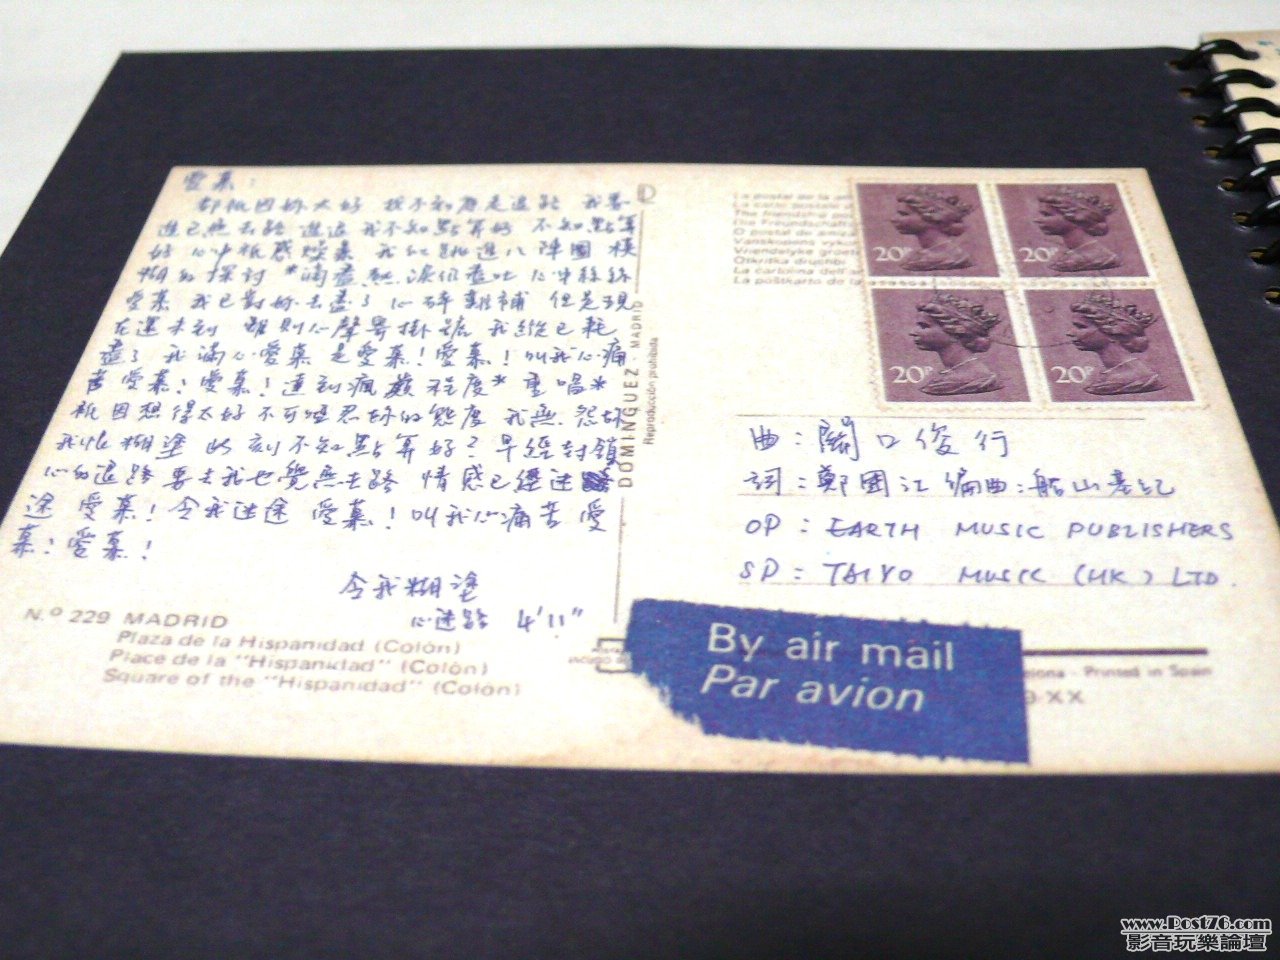 愛慕:
都祇因妳太好 找不到應走這路 我若
進已無去路 進退我不知點算好 不知點算
好 心中祇感煩躁 我似跳進八陣圖 模
糊的探討 *淌盡熱淚但盡吐 心中絲絲
愛慕 我已對妳去盡了 心碎難補 但是現
在還未到 雖則心聲畀掛號 我縱已耗
盡了 我滿心愛慕 是愛慕!愛慕! 叫我心痛
苦 愛慕!愛慕! 達到瘋癲程度* 重唱*
祇因想得太好 不可唔忍妳的態度 我無怨妳
我怕糊塗 此刻不知點算好? 早經封鎖
心的退路 要去我也覺無去路 情感已經迷
途 愛慕! 令我迷途 愛慕! 叫我心痛苦 愛
慕! 愛慕!
令我糊塗
心迷路 4'11"
N.º 229 MADRID
Plaza de la Hispanidad (Colón)
Place de la "Hispanidad" (Colón)
Square of the "Hispanidad" (Colón)
DOMINGUEZ MADRID
Reproducción prohibida
La postal de la
La carte postale
The friendship po
Die Freundschaft
O postal de ami
Vanskupons vykor
Vriendelyke groete
Otkritka druzhbi
La cartolina dell'am
La poŝtkarto de la
20P
20P
20P
20P
曲:關口俊行
詞:鄭國江 編曲:船山基紀
OP: EARTH MUSIC PUBLISHERS
SP: TAIYO MUSIC (HK) LTD.
By air mail
Par avion
Printed in Spain
-XX
www.Post76.com
影音玩樂論壇